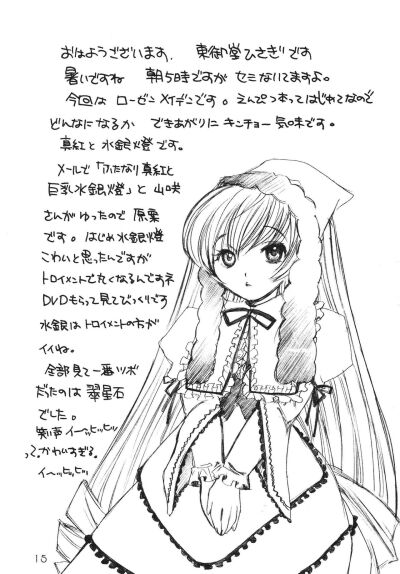 おはようございます. 東御堂ひさぎです
暑いですね 朝5時ですが セミないてますよ。
今回は ローゼンメイデンです。えんぴつ本ってはじめてなので
どんなになるか できあがりに キンチョー気味です。
真紅と水銀燈です。
メールで「ふたなり真紅と
巨乳水銀燈」と 山咲
さんがゆったので 原案
です。はじめ水銀燈
こわいと思ったんですが
トロイメントで丸くなるんですネ
DVDもらって見てびっくりです
水銀はトロイメントの方が
イイね。
全部見て一番ツボ
だったのは 翠星石
でした。
笑い声イーッヒッヒッ
って、かわいすぎる。
イ〜ッヒッヒッ
15